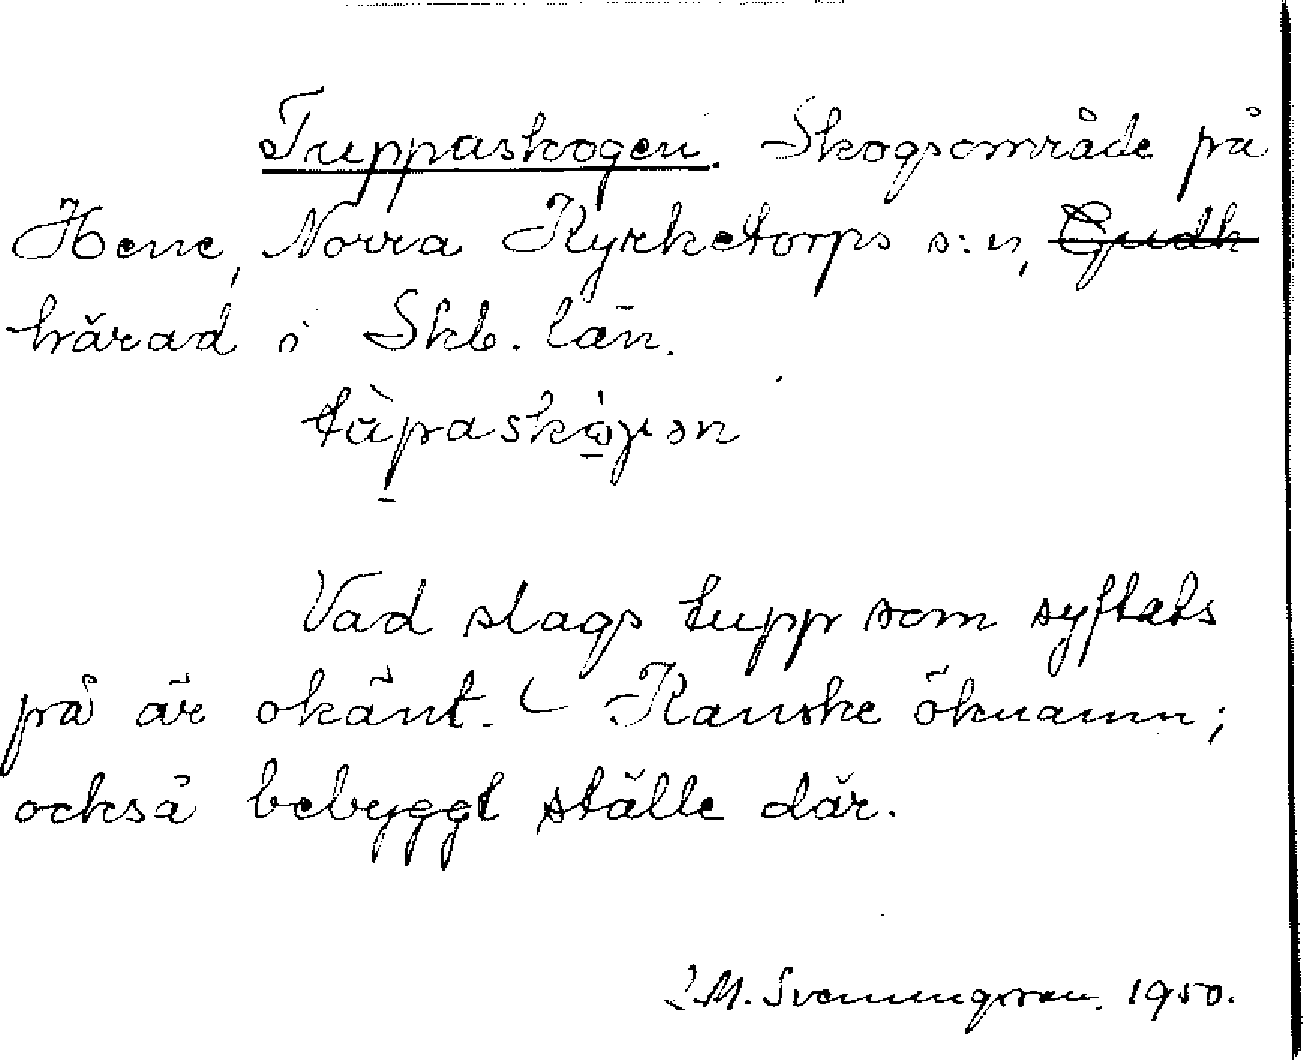 Tuppaskogen. Skogsområde på
Hene, Norra Kyrketorps s:n, Gudh
härad i Skb. län.
Vad slags tupp som syftats
på är okänt. Kanske öknamn;
också bebyggt ställe där.
M. Svenungsson. 1950.